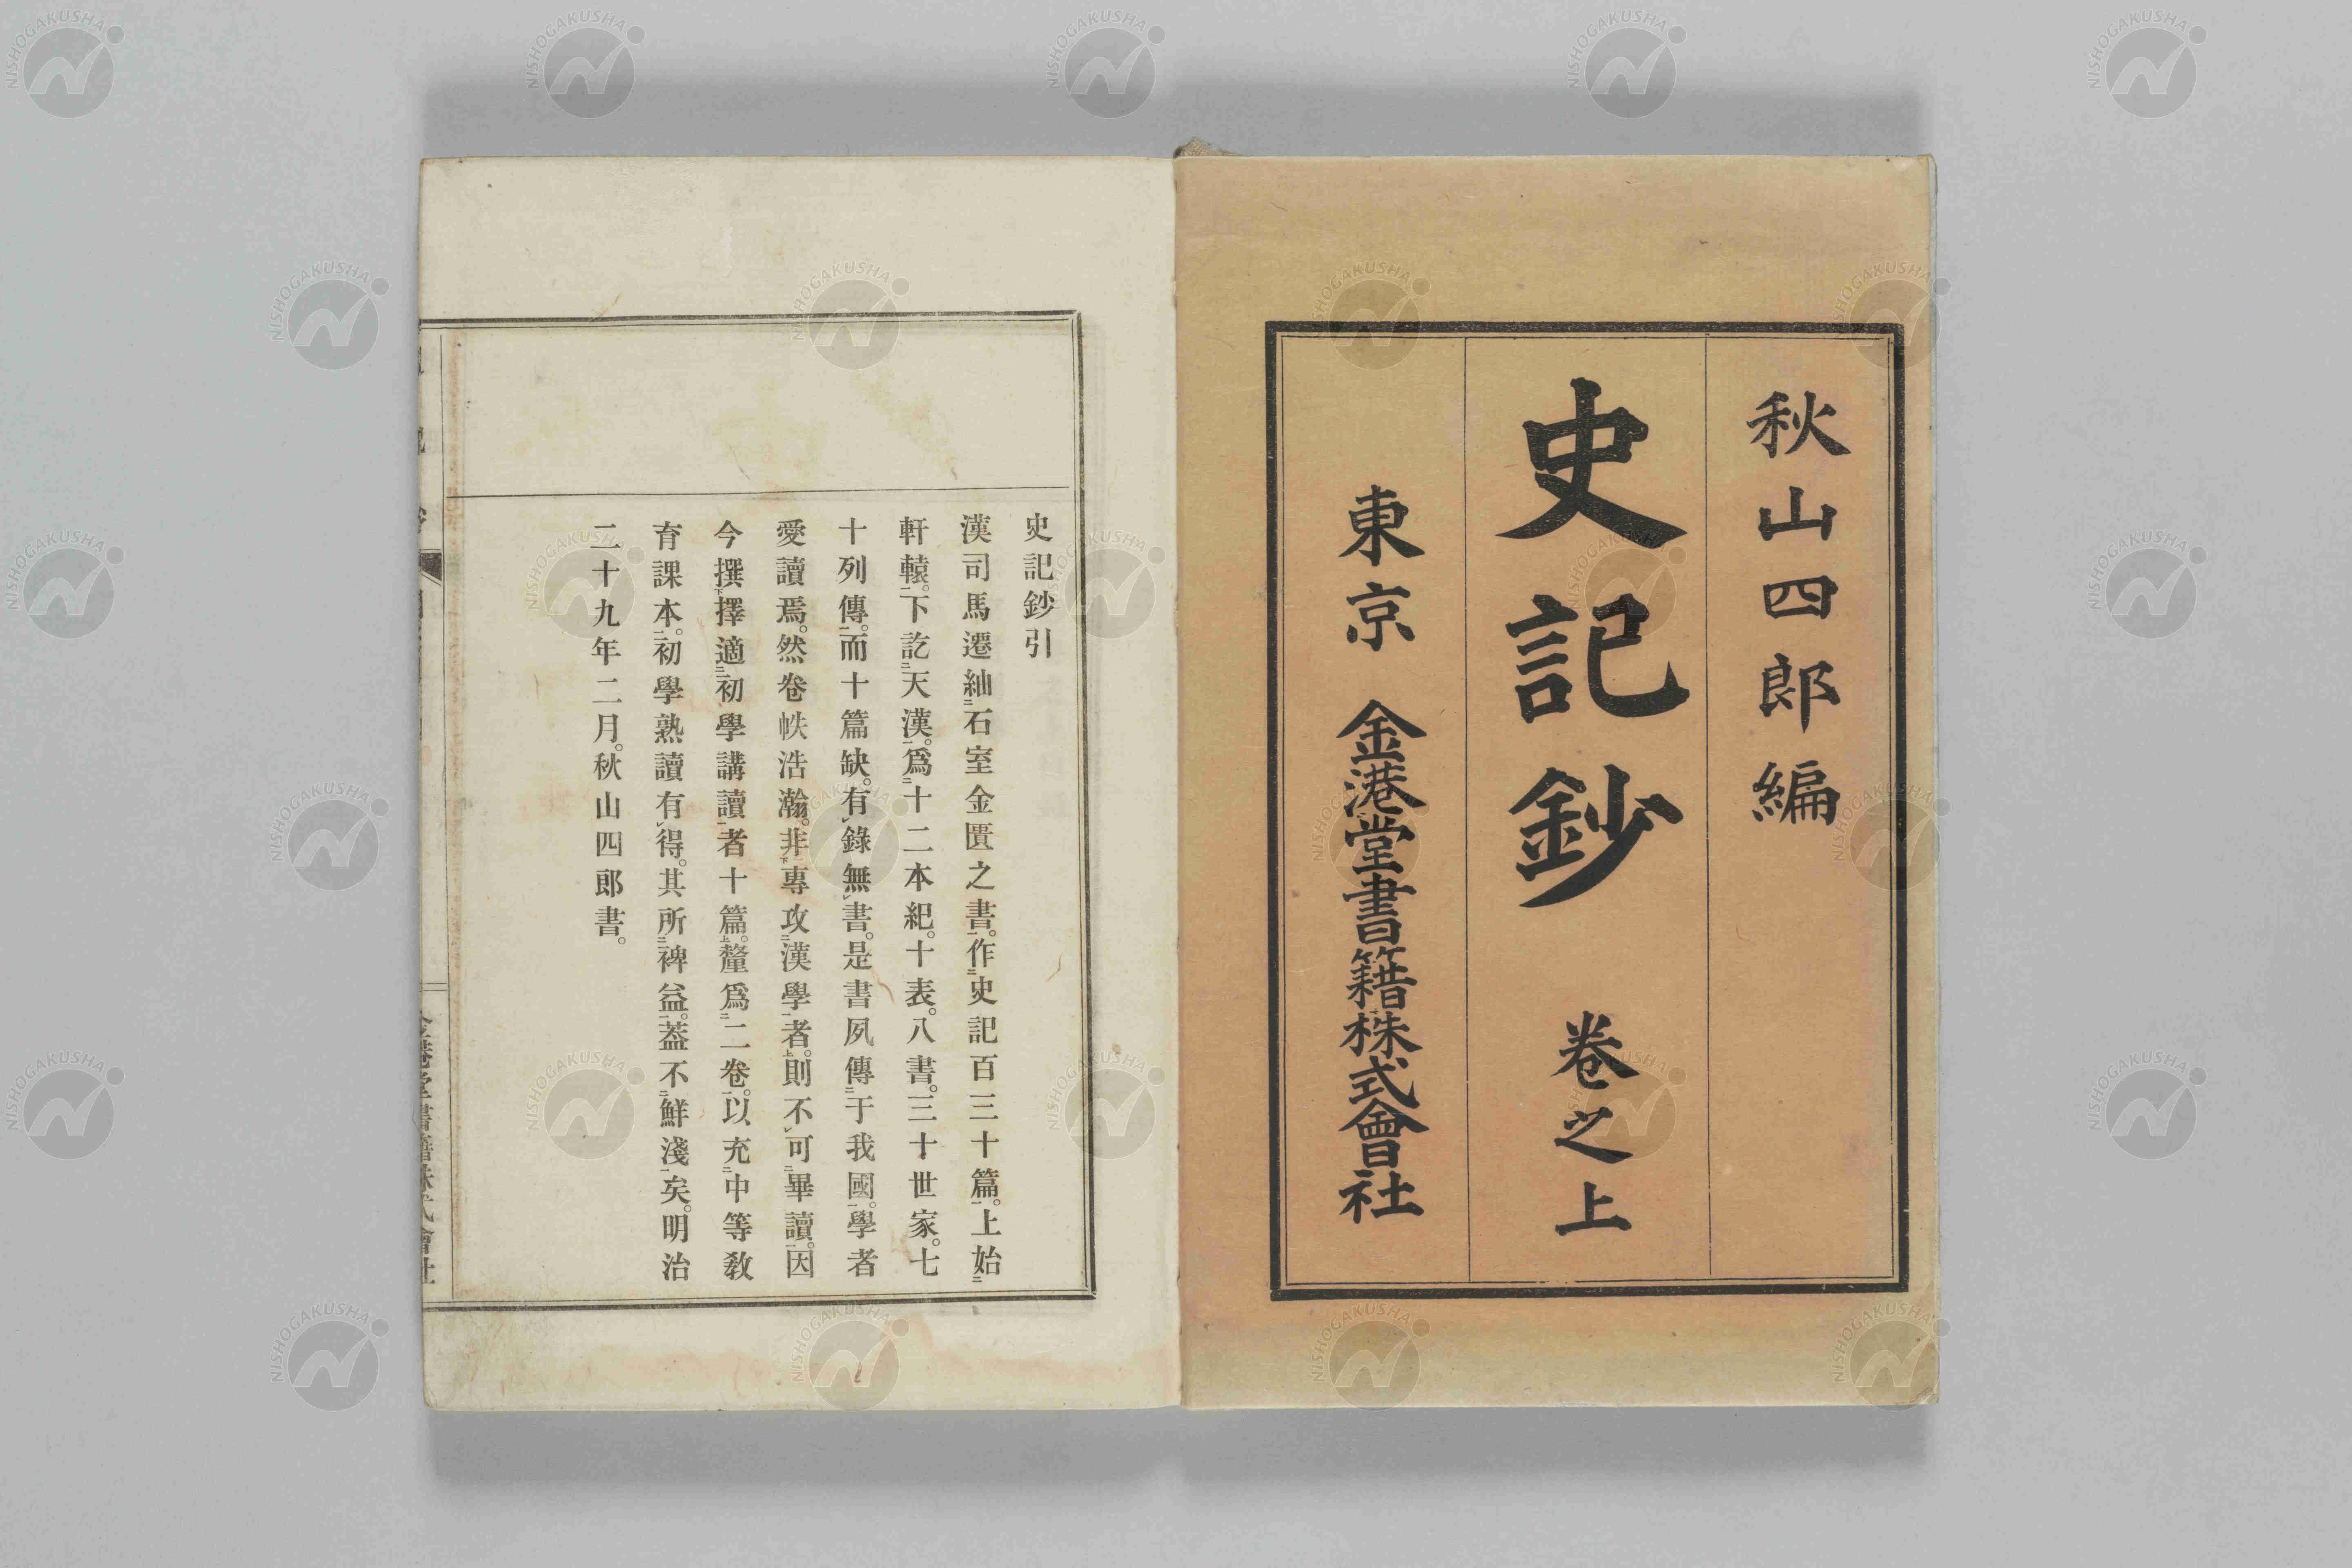 秋山四郎編
史記鈔 卷之上
東京 金港堂書籍株式會社
史記鈔引
漢司馬遷紬㆓石室金匱之書㆒。作㆓史記百三十篇㆒。上始㆓
軒轅㆒。下訖㆓天漢㆒。爲㆓十二本紀。十表。八書。三十世家。七
十列傳㆒。而十篇缺。有㆑錄無㆑書。是書夙傳㆓于我國㆒。學者
愛讀焉。然卷帙浩瀚。非㆘專攻㆓漢學㆒者㆖。則不㆑可㆓畢讀㆒。因
今撰㆘擇適㆓初學講讀㆒者十篇㆖。釐爲㆓二卷㆒。以充㆓中等敎
育課本㆒。初學熟讀有㆑得。其所㆓裨益㆒。葢不㆓鮮淺㆒矣。明治
二十九年二月。秋山四郎書。
金港堂書籍株式會社
NISHOGAKUSHA